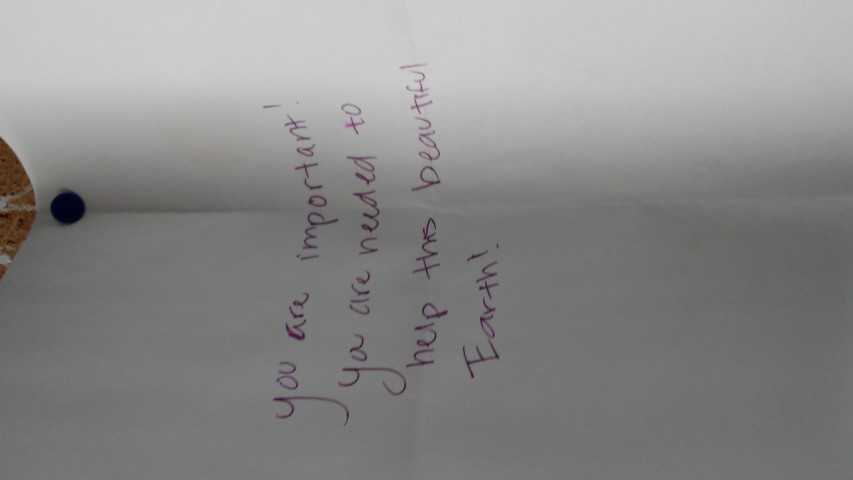 you are important!
you are needed to
help this beautiful
Earth!